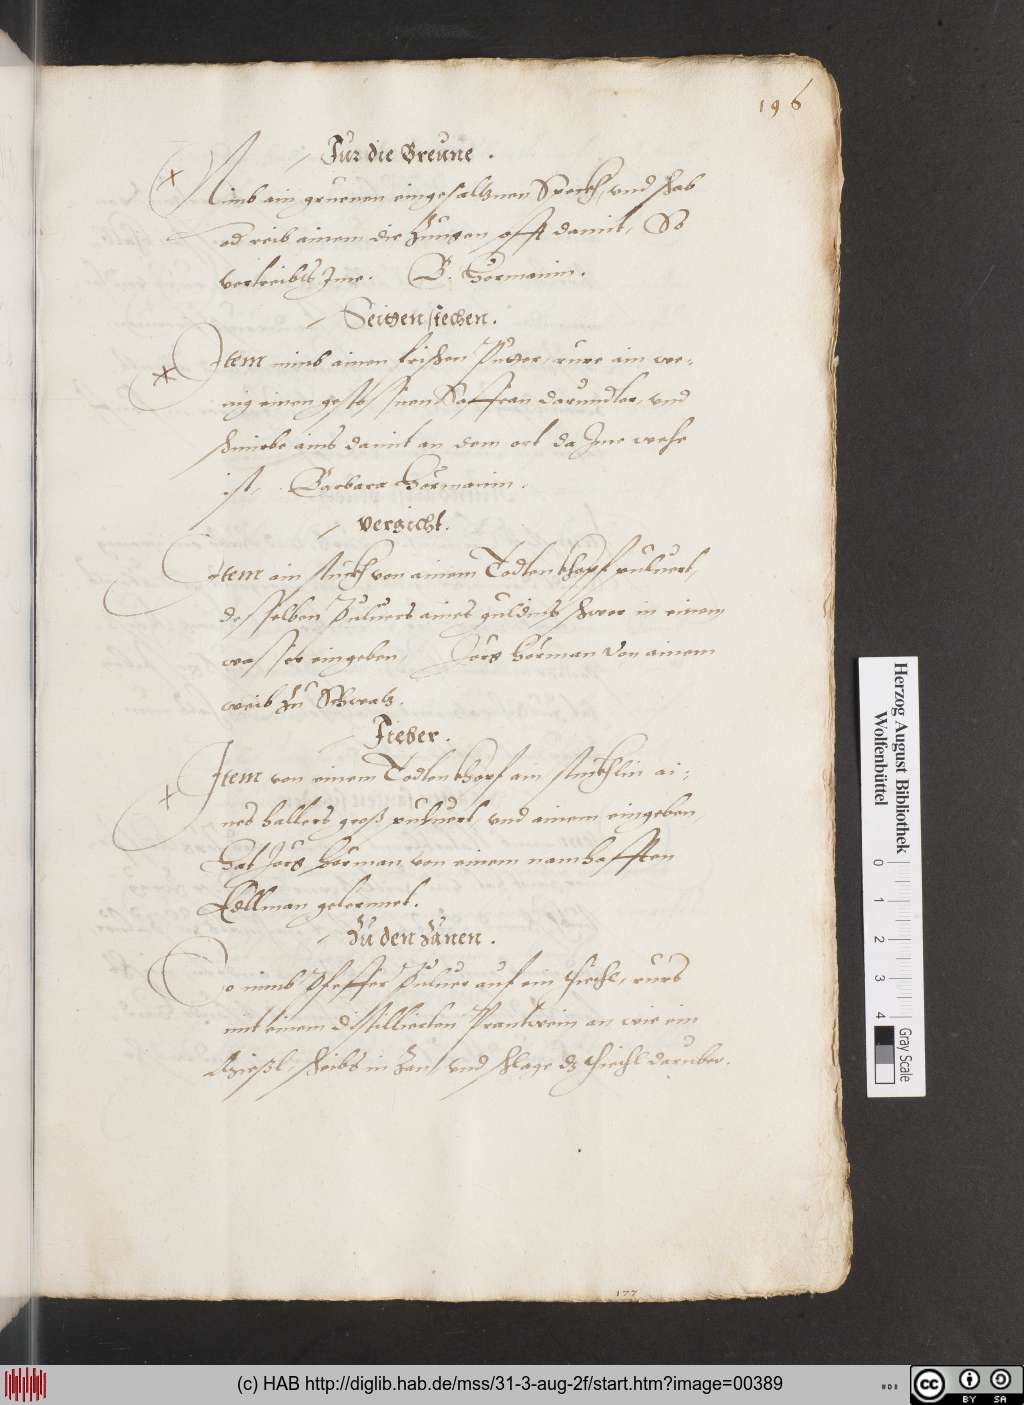 196
Fur die Breune .
Nimb ain gruenen eingesaltznen Speckh, und schab
od reib ainem die Zungen offt damit, So
vertreibts Jme. B. Hörmanin.
Seitgen stechen.
Item nimb ainen frischen Putter, rure ain we,,
nig einen gestossnen Saffran darundter, und
schmirbe ains damit an dem ort da Jme wehe
ist, Barbara Hörmanin.
vergicht.
Item ain stuckh von ainem Todtenkhopf puluert,
desselben Puluers aines guldins schwer in einem
wasser eingeben, Jörg Hörman von ainem
weib zu Schwatz.
Fieber.
Item von einem Todtenkhopf ain stuckhlin ai,,
nes hallers groß puluert, und ainem eingeben,
Hat Jörg Hörman von einem namhafften
Edlman gelernnet.
Zu den Zänen.
So nimb Pfeffer Puluer auf ein tiechl, rurs
mit einem distillierten Prantwein an wie ein
scheibs in Zan, und schlage dz tiechl daruber.
177
Herzog August Bibliothek
Wolfenbüttel
0 1 2 3 4
Gray Scale
(c) HAB http://diglib.hab.de/mss/31-3-aug-2f/start.htm?image=00389
cc BY SA